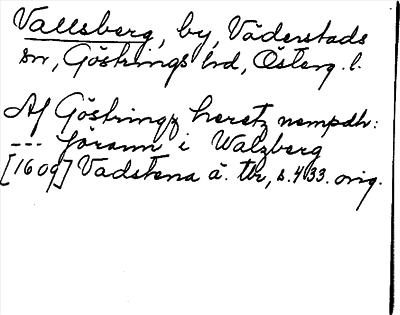 Vallsberg, by, Väderstads
sn, Göstrings hd, Österg. l.
Af Göstringz heretz nempdh:
--- Jörann i Walzberg
[1609] Vadstena ä. tbr, s. 433. orig.